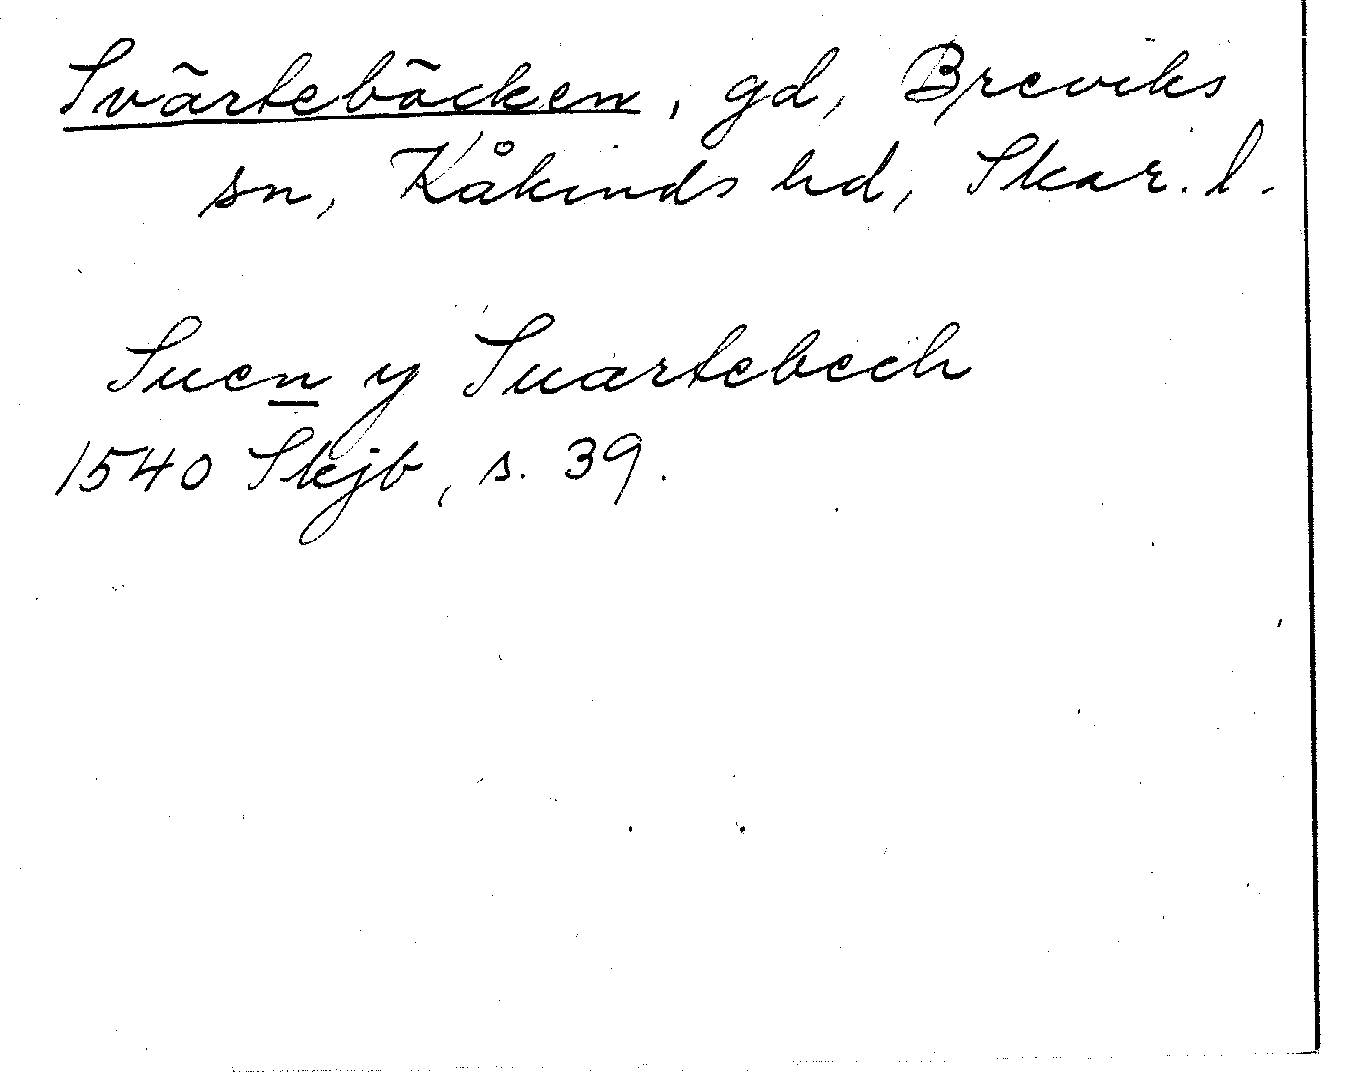 Svärtebäcken, gd, Breviks
sn, Kåkinds hd, Skar. l.
Suen y Suartebech
1540 Skjb, s. 39.